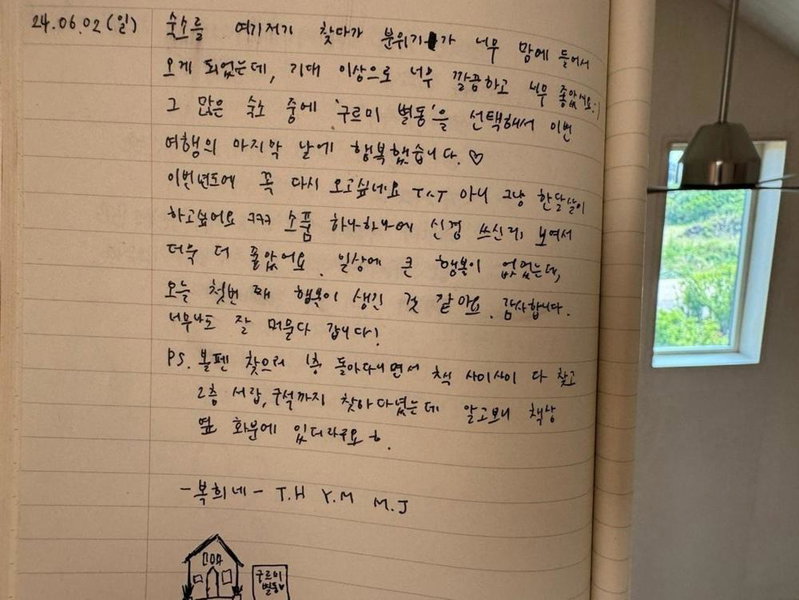 24.06.02 (일) 숙소를 여기저기 찾다가 분위기가 너무 맘에 들어서
오게 되었는데, 기대 이상으로 너무 깔끔하고 너무 좋았어요:)
그 많은 숙소 중에 '구르미 별동'을 선택해서 이번
여행의 마지막 날에 행복했습니다.♡
이번년도에 꼭 다시 오고싶네요 T^T 아니 그냥 한달살이
하고싶어요 ㅋㅋㅋ 소품 하나하나에 신경 쓰신게 보여서
더욱 더 좋았어요. 일상에 큰 행복이 없었는데,
오늘 첫번째 행복이 생긴 것 같아요. 감사합니다.
너무나도 잘 머물다 갑니다!
PS. 볼펜 찾으러 1층 돌아다니면서 책 사이사이 다 찾고
2층 서랍, 구석까지 찾아다녔는데 알고보니 책상
옆 화분에 있더라구요ㅎ.
-복희네- T.H Y.M M.J
구르미
별동♡